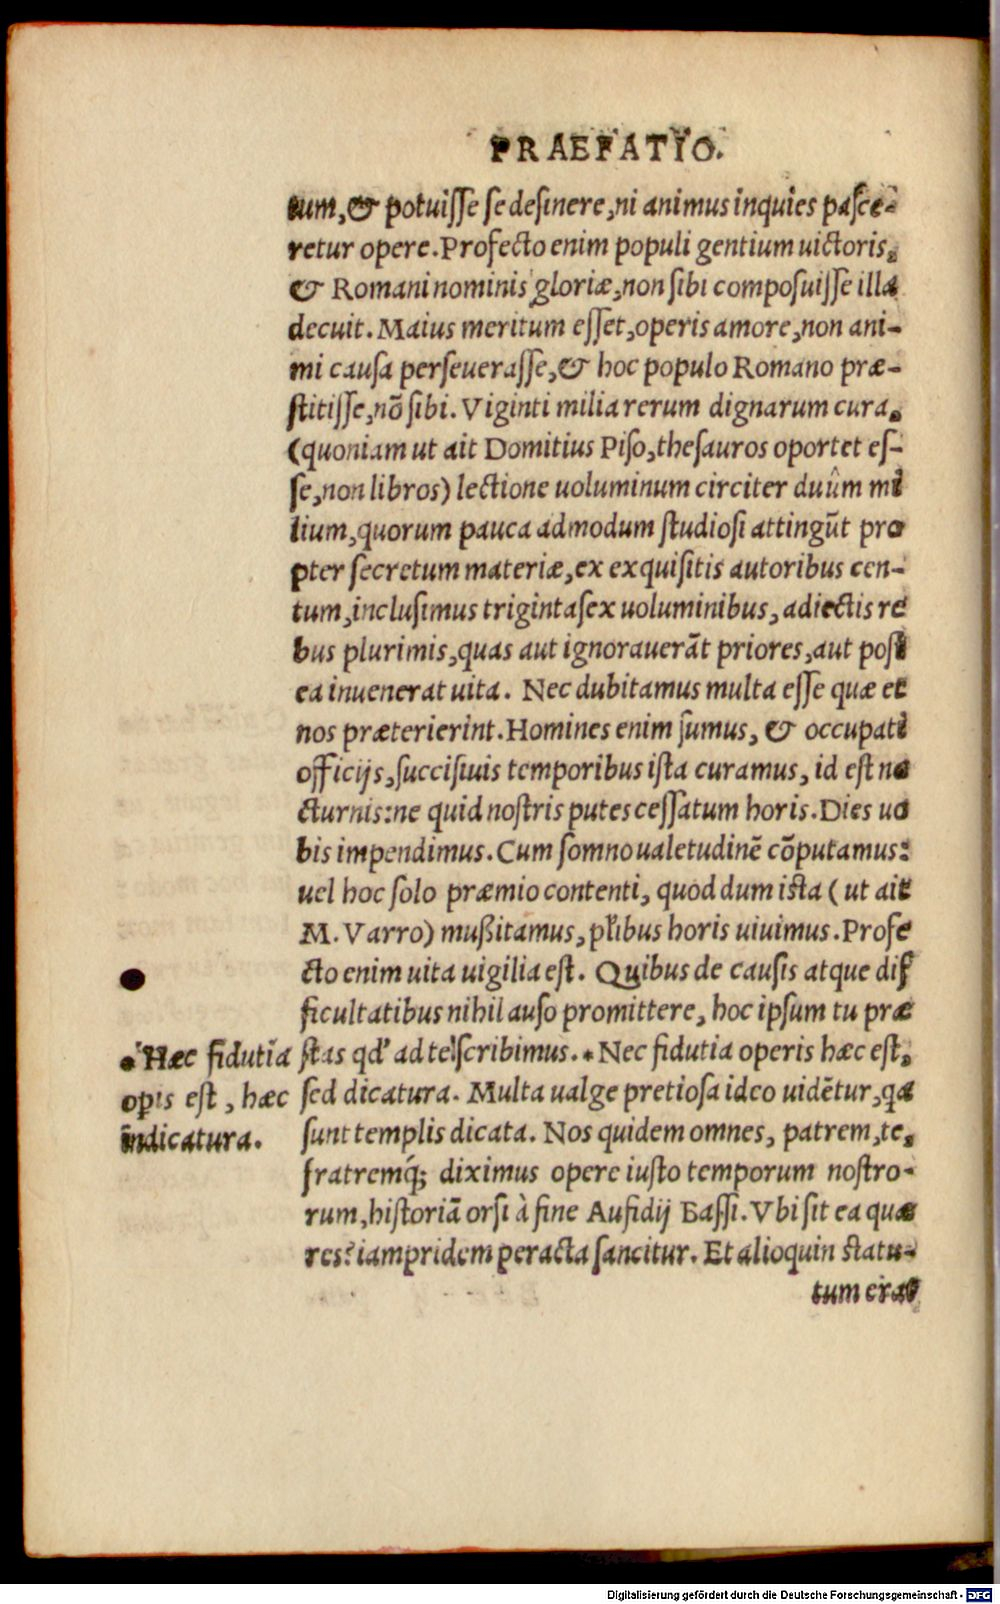 PRAEFATIO.
tum, & potuisse se desinere, ni animus inquies pasce-
retur opere. Profecto enim populi gentium uictoris,
& Romani nominis gloriæ, non sibi composuisse illa
decuit. Maius meritum esset, operis amore, non ani-
mi causa perseuerasse, & hoc populo Romano præ-
stitisse, nō sibi. Viginti milia rerum dignarum cura,
(quoniam ut ait Domitius Piso, thesauros oportet es-
se, non libros) lectione uoluminum circiter duûm mi
lium, quorum pauca admodum studiosi attingūt pro
pter secretum materiæ, ex exquisitis autoribus cen-
tum, inclusimus trigintasex uoluminibus, adiectis re
bus plurimis, quas aut ignorauerāt priores, aut post
ea inuenerat uita. Nec dubitamus multa esse quæ et
nos præterierint. Homines enim sumus, & occupati
officijs, succisiuis temporibus ista curamus, id est no
cturnis: ne quid nostris putes cessatum horis. Dies uo
bis impendimus. Cum somno ualetudinē cōputamus:
uel hoc solo præmio contenti, quod dum ista ( ut ait
M. Varro) mußitamus, płibus horis uiuimus. Profe
cto enim uita uigilia est. Quibus de causis atque dif
ficultatibus nihil auso promittere, hoc ipsum tu præ
stas qđ ad te scribimus. * Nec fidutia operis hæc est,
sed dicatura. Multa ualge pretiosa ideo uidētur, qa
sunt templis dicata. Nos quidem omnes, patrem, te,
fratremq́; diximus opere iusto temporum nostro-
rum, historiā orsi à fine Aufidij Bassi. Vbi sit ea quæ
res? iampridem peracta sancitur. Et alioquin statu-
tum erat
* Hæc fidutia
opis est, hæc
indicatura.
Digitalisierung gefördert durch die Deutsche Forschungsgemeinschaft - DFG